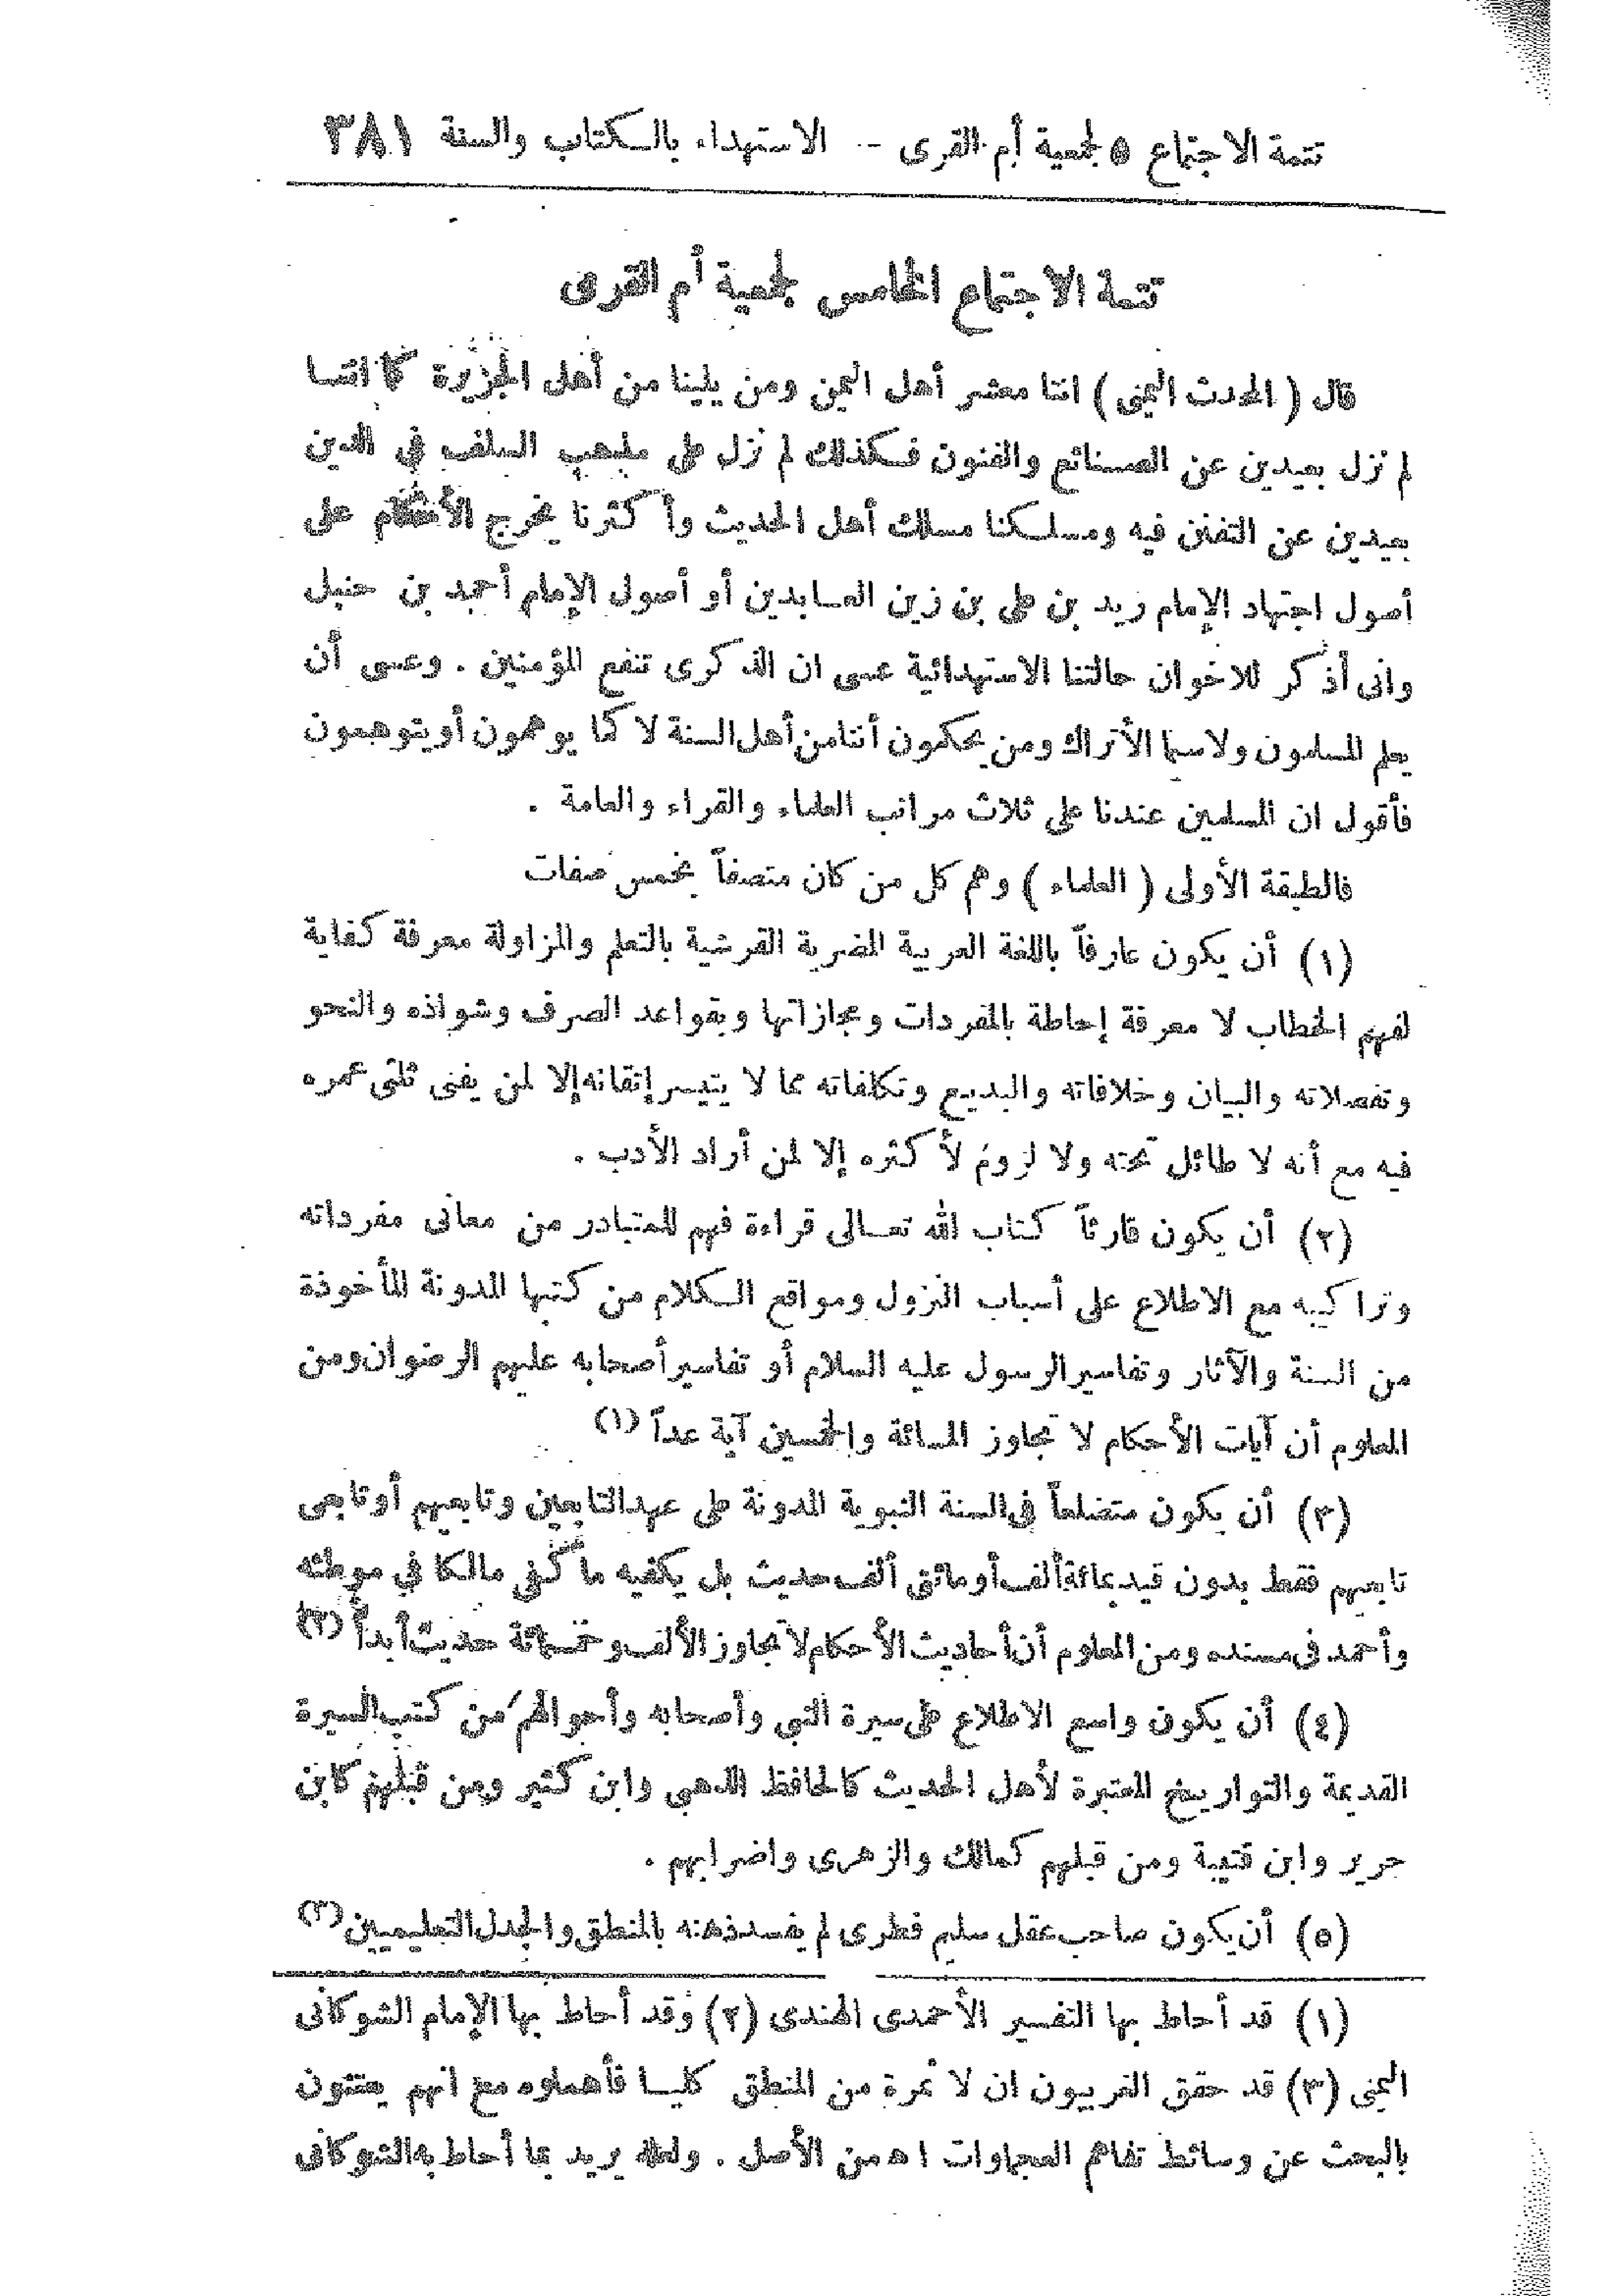 تتمة الاجتماع ٥ لجمعية أم القرى -- الاستهداء بالكتاب والسنة ٣٨١
تتمة الاجتماع الخامس لجمعية أم القرى
قال ( المحدث اليمنى ) اننا معشر أهل اليمن ومن يلينا من أهل الجزيرة كما اننا
لم نزل بعيدين عن الصنائع والفنون فكذلك لم نزل على مذهب السلف في الدين
بعيدين عن التفنن فيه ومسلكنا مسلك أهل الحديث وأكثرنا يخرج الأحكام على
أصول اجتهاد الإمام زيد بن على بن زين العابدين أو أصول الإمام أحمد بن حنبل
وانى أذكر للاخوان حالتنا الاستهدائية عسى ان الذكرى تنفع المؤمنين . وعسى أن
يعلم المسلمون ولاسيما الأتراك ومن يحكمون أننا من أهل السنة لا كما يوهمون أو يتوهمون
فأقول ان المسلمين عندنا على ثلاث مراتب العلماء والقراء والعامة .
فالطبقة الأولى ( العلماء ) وهم كل من كان متصفاً بخمس صفات
(١) أن يكون عارفاً باللغة العربية المضرية القرشية بالتعلم والمزاولة معرفة كفاية
لفهم الخطاب لا معرفة إحاطة بالمفردات ومجازاتها وبقواعد الصرف وشواذه والنحو
وتفصلاته والبيان وخلافاته والبديع وتكلفاته مما لا يتيسر إتقانه إلا لمن يفنى ثلثى عمره
فيه مع أنه لا طائل تحته ولا لزوم لأكثره إلا لمن أراد الأدب .
(٢) أن يكون قارئاً كتاب الله تعالى قراءة فهم للمتبادر من معانى مفرداته
وتراكيبه مع الاطلاع على أسباب النزول ومواقع الكلام من كتبها المدونة المأخوذة
من السنة والآثار وتفاسير الرسول عليه السلام أو تفاسير أصحابه عليهم الرضوان ومن
المعلوم أن آيات الأحكام لا تجاوز المائة والخمسين آية عداً (١)
(٣) أن يكون متضلعاً فى السنة النبوية المدونة على عهد التابعين وتابعيهم أو تابعى
تابعيهم فقط بدون قيد بمائة ألف أو مائتى ألف حديث بل يكفيه ما كفى مالكا في موطئه
وأحمد فى مسنده ومن المعلوم أن أحاديث الأحكام لا تجاوز الألف وخمسمائة حديث أبداً (٢)
(٤) أن يكون واسع الاطلاع على سيرة النبى وأصحابه وأحوالهم من كتب السيرة
القديمة والتواريخ المعتبرة لأهل الحديث كالحافظ الذهبى وابن كثير ومن قبلهم كابن
جرير وابن قتيبة ومن قبلهم كمالك والزهرى واضرابهم .
(٥) أن يكون صاحب عقل سليم فطرى لم يفسد ذهنه بالمنطق والجدل التعليميين (٣)
(١) قد أحاط بها التفسير الأحمدى الهندى (٢) وقد أحاط بها الإمام الشوكانى
اليمنى (٣) قد حقق الغربيون ان لا ثمرة من المنطق كليا فأهملوه مع انهم يعتنون
بالبحث عن وسائط تفاهم العجماوات اه من الأصل . ولعله يريد بما أحاط به الشوكانى